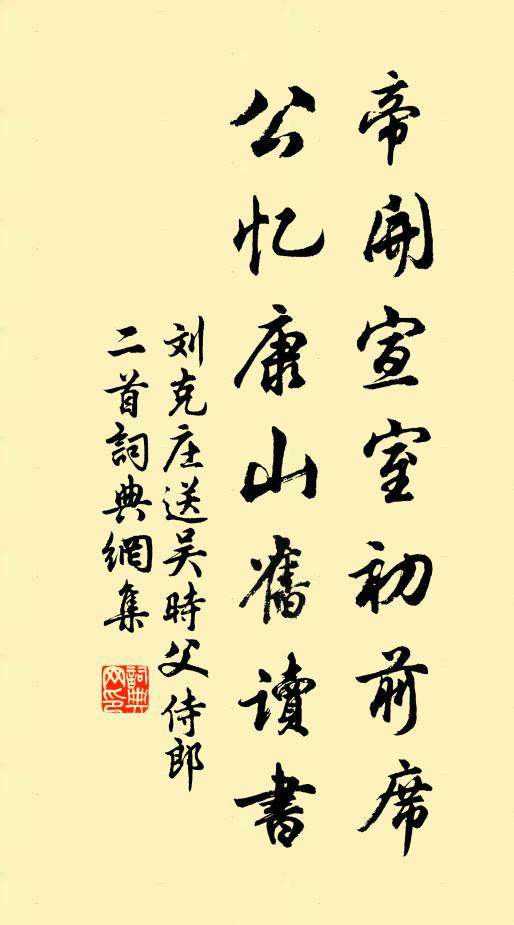 帝開宣室初前席
公忆康山舊读書
刘克庄送吴時父侍郎
二首詞典網集
詞典网印